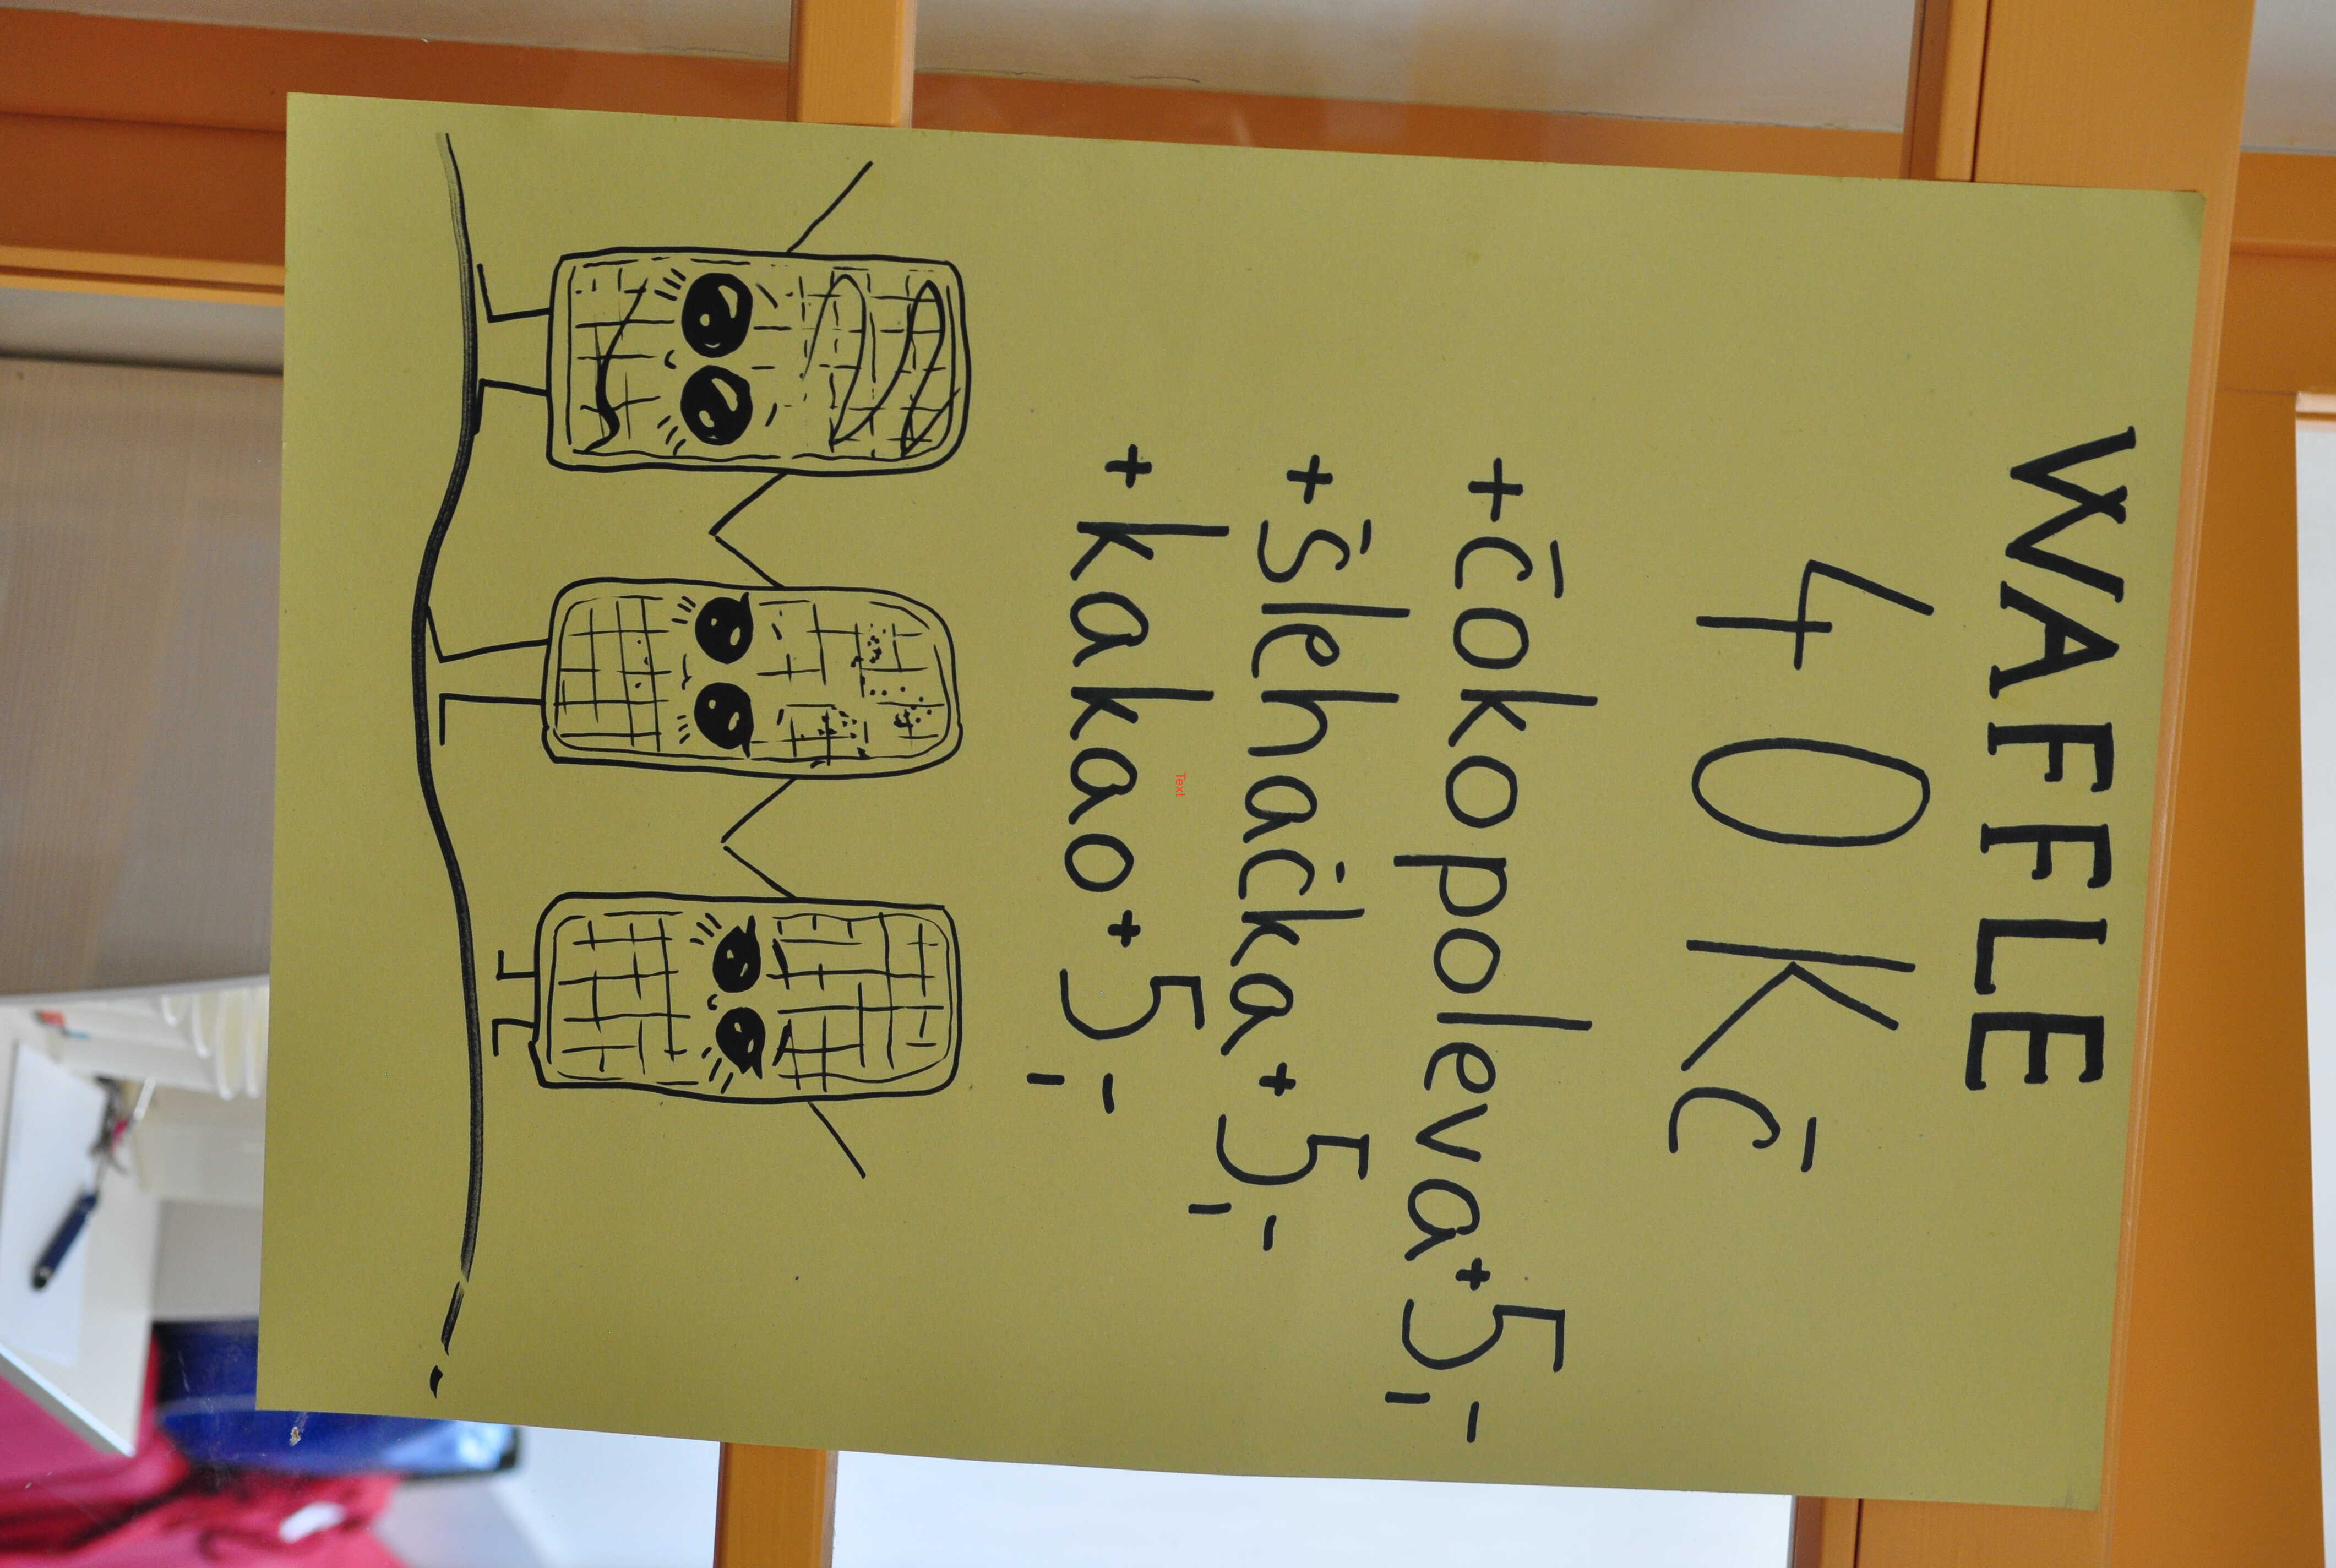 WAFFLE
40 Kč
+čokopoleva+5,-
+šlehačka+5,-
+kakao+5,-
Text